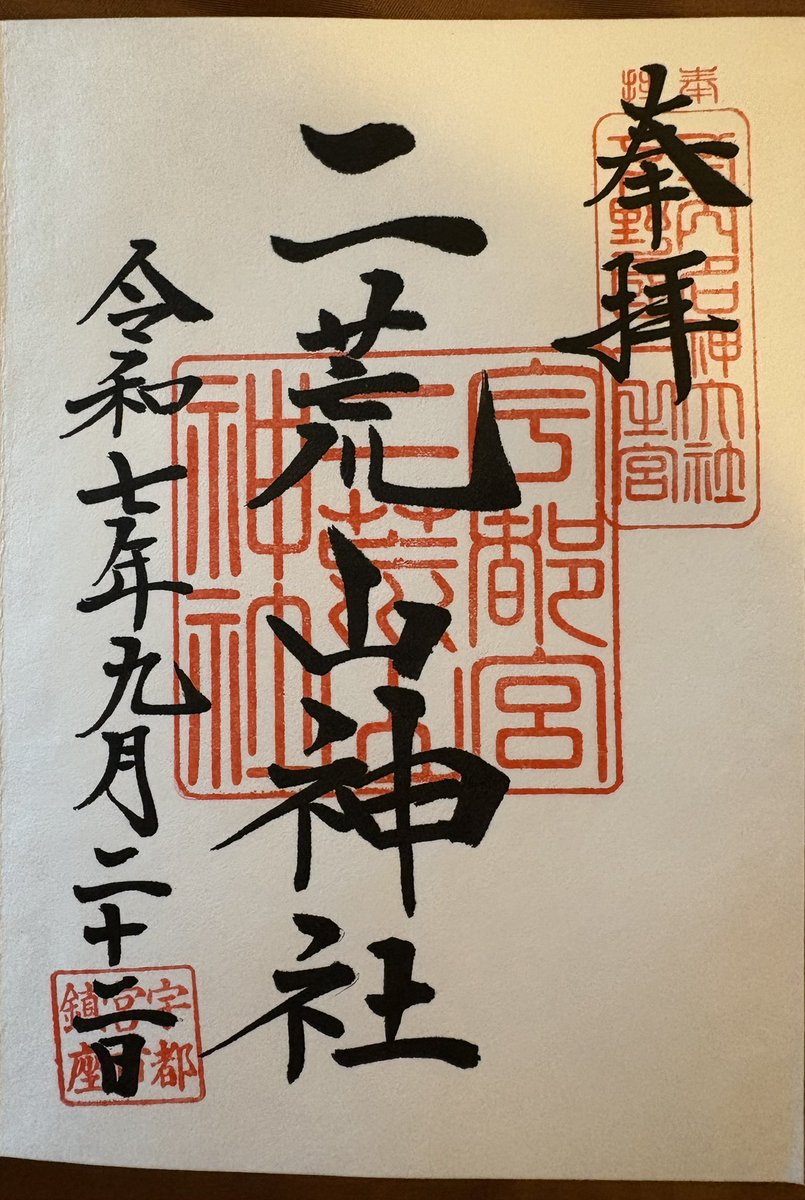 奉拝
式内名神大社
下野國一之宮
奉拝
二荒山神社
宇都宮
二荒山
神社
令和七年九月二十二日
宇都
宮市
鎮座